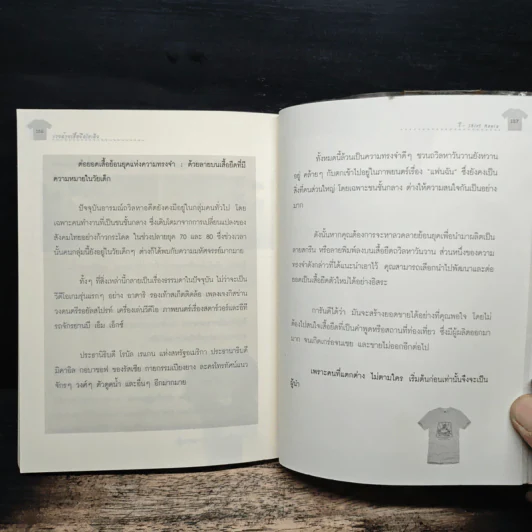 ต่อยอดเสื้อย้อนยุคแห่งความทรงจำ : ด้วยลายบนเสื้อยืดที่มี
ความหมายในวัยเด็ก
ปัจจุบันอารมณ์ถวิลหาอดีตยังคงมีอยู่ในกลุ่มคนทั่วไป โดย
เฉพาะคนทำงานที่เป็นชนชั้นกลาง ซึ่งเติบโตมาจากการเปลี่ยนแปลงของ
สังคมไทยอย่างก้าวกระโดด ในช่วงปลายยุค 70 และ 80 ซึ่งช่วงเวลา
นั้นคนกลุ่มนี้ยังอยู่ในวัยเด็กๆ ต่างก็ได้พบกับความมหัศจรรย์มากมาย
ทั้งๆ ที่สิ่งเหล่านี้กลายเป็นเรื่องธรรมดาในปัจจุบัน ไม่ว่าจะเป็น
วีดีโอเกมรุ่นแรกๆ อย่าง อาตาริ รองเท้าสเก็ตติดล้อ เพลงเจงกิสข่าน
วงดนตรีรอยัลสไปรท์ เครื่องเล่นวีดีโอ ภาพยนตร์เรื่องสตาร์วอร์และอีที
รถจักรยานบี เอ็ม เอ็กซ์
ประธานาธิบดี โรนัล เรแกน แห่งสหรัฐอเมริกา ประธานาธิบดี
มิคาอิล กอบาชอฟ ของรัสเซีย กายกรรมเปียงยาง ละครโทรทัศน์แนว
จักรๆ วงศ์ๆ ตัวดูดน้ำ และอื่นๆ อีกมากมาย
157
ทั้งหมดนี้ล้วนเป็นความทรงจำดีๆ ชวนถวิลหาวันวานยังหวาน
อยู่ คล้ายๆ กับตกเข้าไปอยู่ในภาพยนตร์เรื่อง "แฟนฉัน" ซึ่งยังคงเป็น
สิ่งที่คนส่วนใหญ่ โดยเฉพาะชนชั้นกลาง ต่างให้ความสนใจกันเป็นอย่าง
มาก
ดังนั้นหากคุณต้องการจะหาลวดลายย้อนยุคเพื่อนำมาผลิตเป็น
ลายสกรีน หรือลายพิมพ์ลงบนเสื้อยืดถวิลหาวันวาน ส่วนหนึ่งของความ
ทรงจำดังกล่าวที่ได้แนะนำเอาไว้ คุณสามารถเลือกนำไปพัฒนาและต่อ
ยอดเป็นเสื้อยืดตัวใหม่ได้อย่างอิสระ
การันตีได้ว่า มันจะสร้างยอดขายได้อย่างที่คุณพอใจ โดยไม่
ต้องไปสนใจเสื้อยืดที่เป็นคำพูดหรือสถานที่ท่องเที่ยว ซึ่งมีผู้ผลิตออกมา
มาก จนเกิดเกร่อจนเซย และขายไม่ออกอีกต่อไป
เพราะคนที่แตกต่าง ไม่ตามใคร เริ่มต้นก่อนเท่านั้นจึงจะเป็น
ผู้นำ